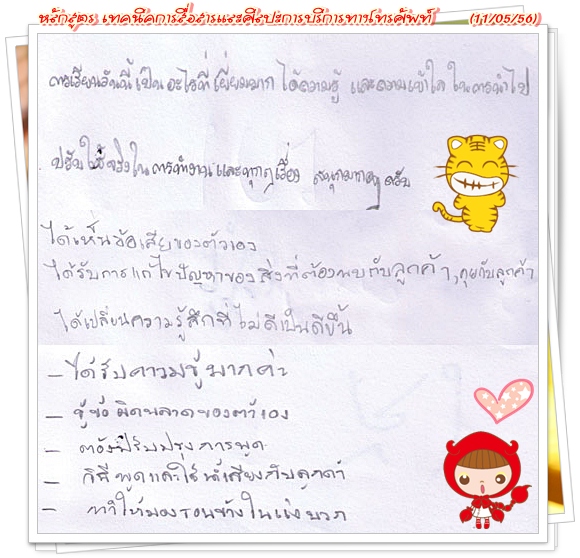 หลักสูตร เทคนิคการสื่อสารและศิลปะการบริการทางโทรศัพท์ (11/05/56)
การเรียนวันนี้เป็นอะไรที่เยี่ยมมาก ได้ความรู้ และความเข้าใจ ในการนำไป
ปรับใช้จริงในการทำงาน และทุกๆเรื่อง สนุกมากๆ ครับ
ได้เห็นข้อเสียของตัวเอง
ได้รับการแก้ไขปัญหาของสิ่งที่ต้องพบกับลูกค้า, คุยกับลูกค้า
ได้เปลี่ยนความรู้สึกที่ไม่ดีเป็นดีขึ้น
- ได้รับความรู้มากค่ะ
- รู้ข้อผิดพลาดของตัวเอง
- ต้องปรับปรุงการพูด
- วิธีพูดและใช้น้ำเสียงกับลูกค้า
- ทำให้มองรอบข้างในแง่บวก